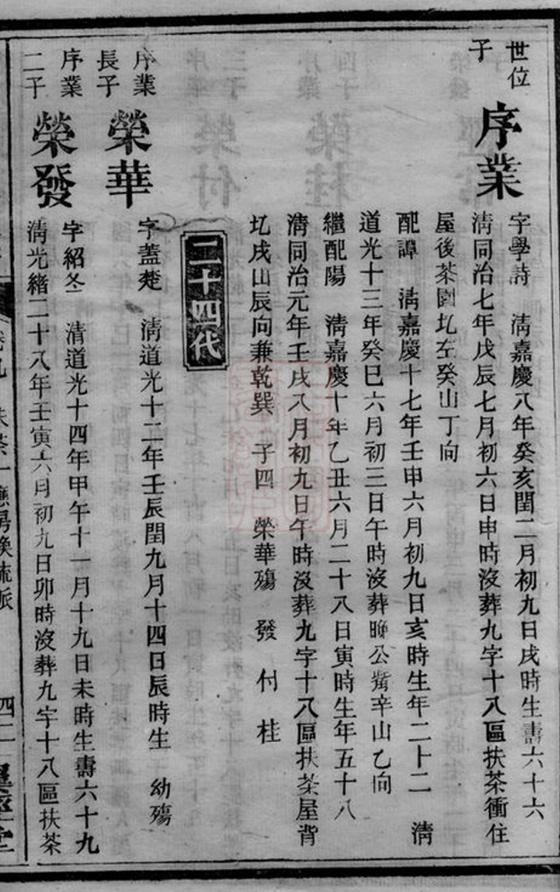 世位
子
序業
字學詩 清嘉慶八年癸亥閏二月初九日戌時生壽六十六
清同治七年戊辰七月初六日申時沒葬九字十八區扶茶衝住
屋後茶園圠左癸山丁向
配譚 清嘉慶十七年壬申六月初九日亥時生年二十二 清
道光十三年癸巳六月初三日午時沒葬晚公觜辛山乙向
繼配陽 清嘉慶十年乙丑六月二十八日寅時生年五十八
清同治元年壬戌八月初九日午時沒葬九字十八區扶茶屋背
圠戌山辰向兼乾巽 子四 榮華殤 發 付 桂
二十四代
序業
長子
榮華
字蓋楚 清道光十二年壬辰閏九月十四日辰時生 幼殤
序業
二子
榮發
字紹冬 清道光十四年甲午十一月十九日未時生壽六十九
清光緒二十八年壬寅六月初九日卯時沒葬九字十八區扶茶
卷九 扶茶一應房煥流派
四二